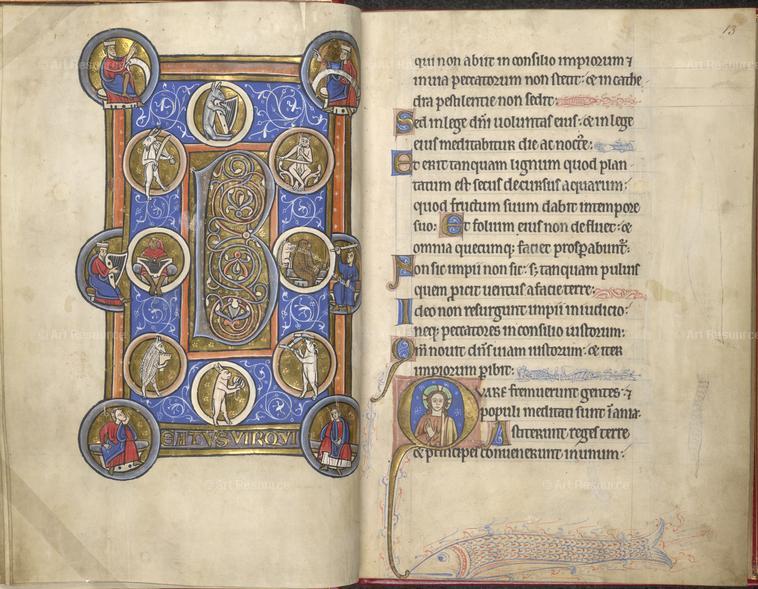 B
EATVS VIR QVI
13
qui non abiit in consilio impiorum ⁊
in uia peccatorum non stetit: ⁊ in cathe
dra pestilentie non sedit:
Sed in lege dñi uoluntas eius: ⁊ in lege
eius meditabitur die ac nocte:
Et erit tanquam lignum quod plan
tatum est secus decursus aquarum:
quod fructum suum dabit in tempore
suo: Et folium eius non defluet: ⁊
omnia quecumq; faciet prosꝑabunt̃:
Non sic impii non sic: s; tanquam puluis
quem ꝓicit uentus a facie terre:
Ideo non resurgunt impii in iudicio:
neq; peccatores in consilio iustorum:
Qm̃ nouit dñs uiam iustorum: ⁊ iter
impiorum ꝑibit:
QVARE fremuerunt gentes: ⁊
populi meditati sunt inania:
Astiterunt reges terre
⁊ principes conuenerunt in unum:
© Art Resource